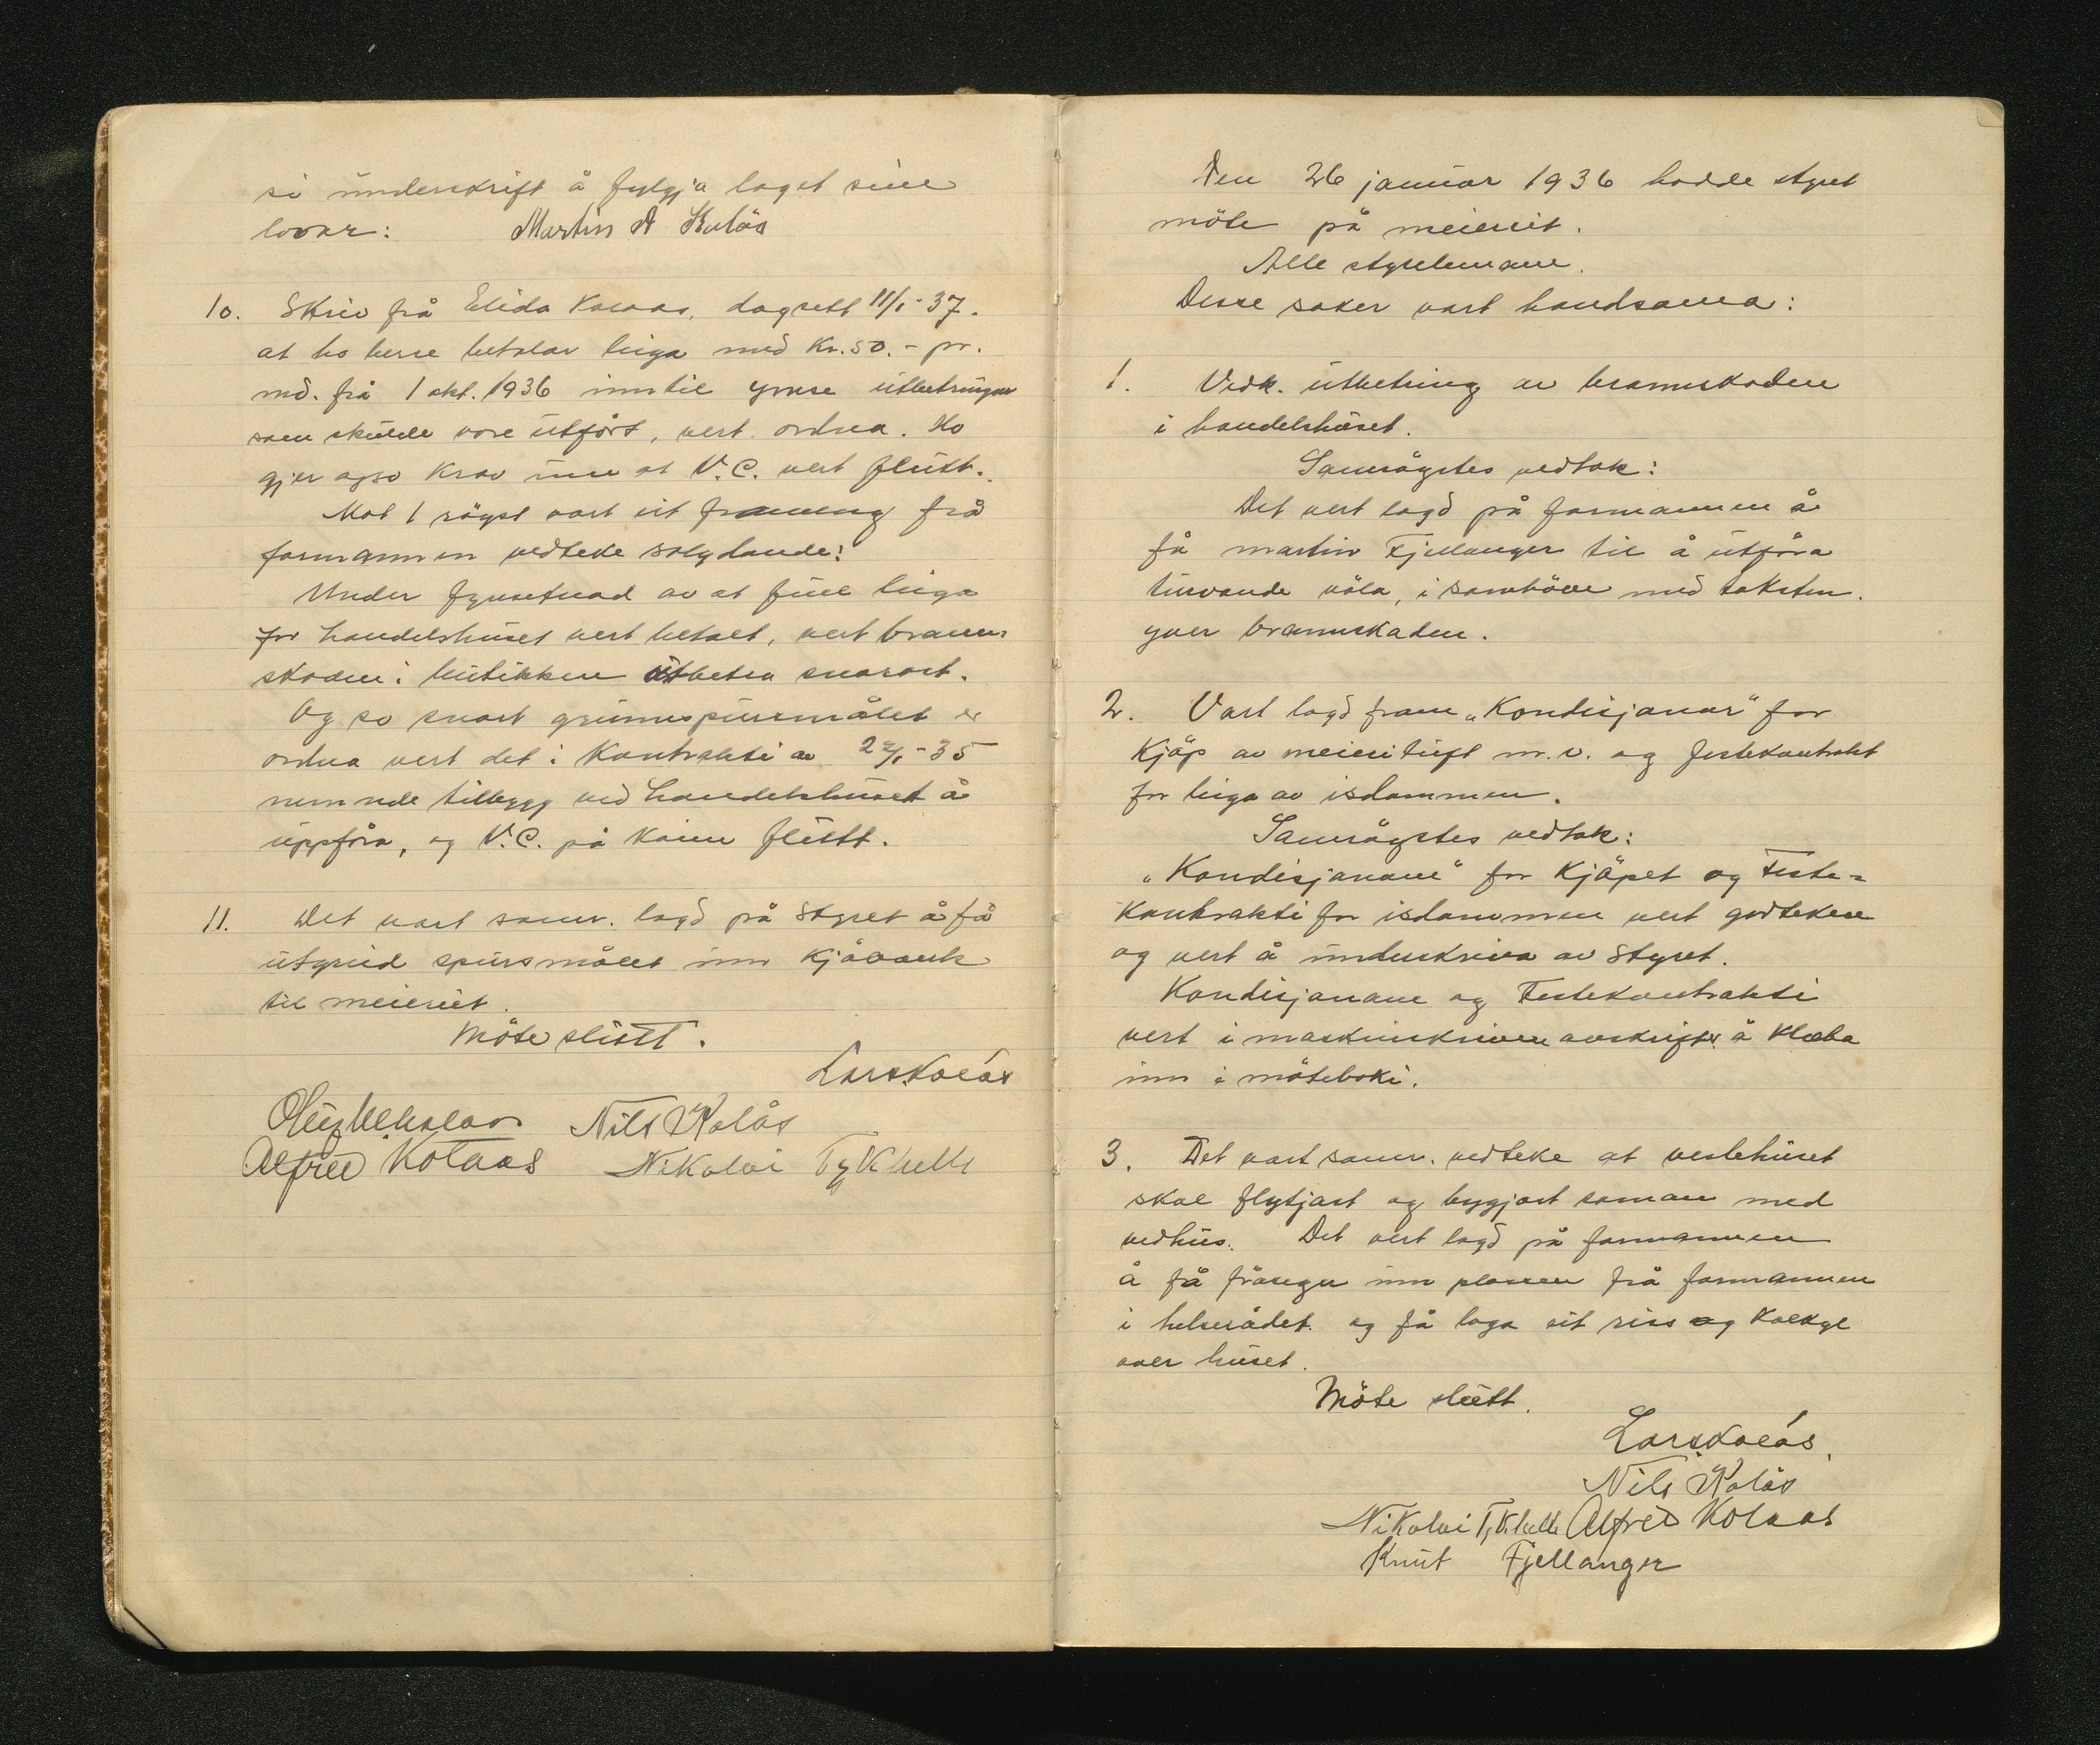 si underskrift å fylgja laget sine
lovar: Martin A Kolås
10. Skriv frå Elida Kolaas, dagsett 11/1-37.
at ho berre betalar leiga med Kr. 50.- pr.
md. frå 1 okt. 1936 inntil ymse utbetringar
som skulde vore utført, vert ordna. Ho
gjer ogso krav um at V.C. vert flutt.
Mot 1 røyst vart eit framlegg frå
formannen vedteke solydande:
Under fyresetnad av at full leiga
for handelshuset vert betalt, vert brann-
skaden i butikken utbetra snarast.
Og so snart grunnspursmålet er
ordna vert det i kontrakti av 22/1-35
nemnde tilbygg ved handelshuset å
uppføra, og V.C. på kaien flutt.
11. Det vart samr. lagd på styret å få
utgreid spursmålet um kjøleverk
til meieriet.
Møte slutt.
Lars Kolås
Nils Kolås
Alfred Kolaas Nikolai Fj. Khelle
Den 26 januar 1936 hadde styret
møte på meieriet.
Alle styrelemane.
Desse saker vart handsama:
1. Vedk. utbetring av brannskaden
i handelshuset.
Samrøystes vedtak:
Det vert lagd på formannen å
få Martin Fjellanger til å utføra
turvande vøla, i samhøve med taksten
yver brannskaden.
2. Vart lagd fram „Kondisjonar" for
kjøp av meierituft m.v. og festekontrakt
for leiga av isdammen.
Samrøystes vedtak:
„Kondisjonane" for kjøpet og Feste=
kontrakti for isdammen vert godtekne
og vert å underskriva av styret.
Kondisjonane og Festekontrakti
vert i maskinskrivne avskrifter å klæba
inn i møteboki.
3. Det vart samr. vedteke at veslehuset
skal flytjast og byggjast saman med
vedhus. Det vert lagd på formannen
å få fråsegn um plassen frå formannen
i helserådet og få laga eit riss og kalkyle
over huset.
Møte slutt.
Lars Kolås.
Nils Kolås
Nikolai Fj. Khelle Alfred Kolaas
Knut Fjellanger